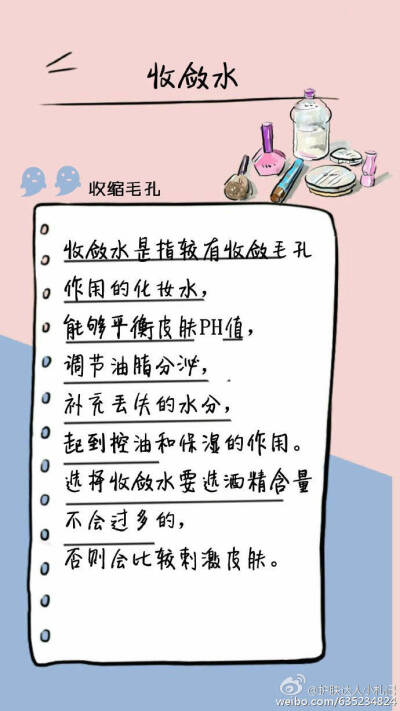 收敛水
收缩毛孔
收敛水是指较有收敛毛孔
作用的化妆水，
能够平衡皮肤PH值，
调节油脂分泌，
补充丢失的水分，
起到控油和保湿的作用。
选择收敛水要选酒精含量
不会过多的，
否则会比较刺激皮肤。
@护肤达人小札记
weibo.com/635234824